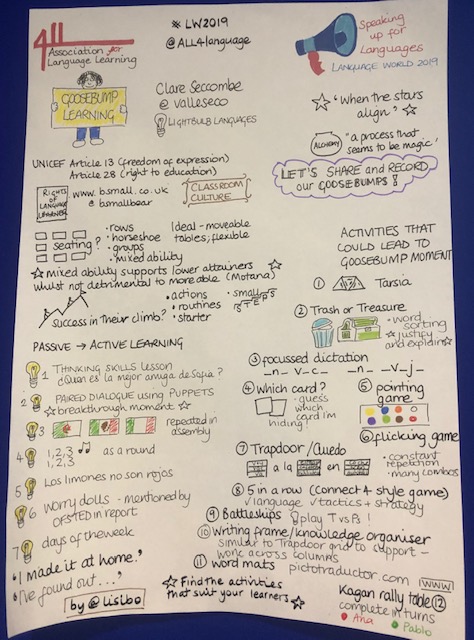 # LW2019
@ALL4language
4ll
Association for
Language Learning
Speaking
up for
Languages
LANGUAGE WORLD 2019
GOOSEBUMP
LEARNING
Clare Seccombe
@valleseco
LIGHTBULB LANGUAGES
☆ 'When the stars
align' ☆
ALCHEMY
"a process that
seems to be magic"
UNICEF Article 13 (freedom of expression)
Article 28 (right to education)
LET'S SHARE and RECORD
our GOOSEBUMPS!
RIGHTS
OF
LANGUAGE
LEARNER
www.bsmall.co.uk
@bsmallbear
CLASSROOM
CULTURE
seating?
• rows
• horseshoe
• groups
• mixed ability
Ideal - moveable
tables; flexible
☆ mixed ability supports lower attainers ☆
whilst not detrimental to more able (Motana)
success in their climb?
• actions
• routines
• starter
• small STEPS
PASSIVE → ACTIVE LEARNING
1 THINKING SKILLS LESSON
¿Quan es la mejor amiga de Sapia?
2 PAIRED DIALOGUE using PUPPETS
☆ breakthrough moment ☆
3
repeated in
assembly
4 1,2,3
1,2,3
as a round
5 Los limones no son rojos
6 worry dolls - mentioned by
OFSTED in report
7 days of the week
'I made it at home.'
'I've found out...'
by @lisibo
ACTIVITIES THAT
COULD LEAD TO
GOOSEBUMP MOMENT
① Tarsia
② Trash or Treasure
• word
sorting
☆ justify
and explain ☆
③ focussed dictation
_n_ v_c_ _n_ _v_j_
④ Which card?
• guess
which
card I'm
hiding!
⑤ pointing
game
⑥ flicking game
⑦ Trapdoor/Cluedo
a la
en
• constant
repetition
• many combos
⑧ 5 in a row (Connect 4 style game)
✓ language ✓ tactics + strategy
⑨ Battleships play T vs Ps!
⑩ Writing frame/knowledge organiser
similar to Trapdoor grid to support -
work across columns
⑪ word mats pictotraductor.com
WWW
☆ Find the activities
that suit your learners ☆
Kagan rally table ⑫
complete in turns
• Ana • Pablo